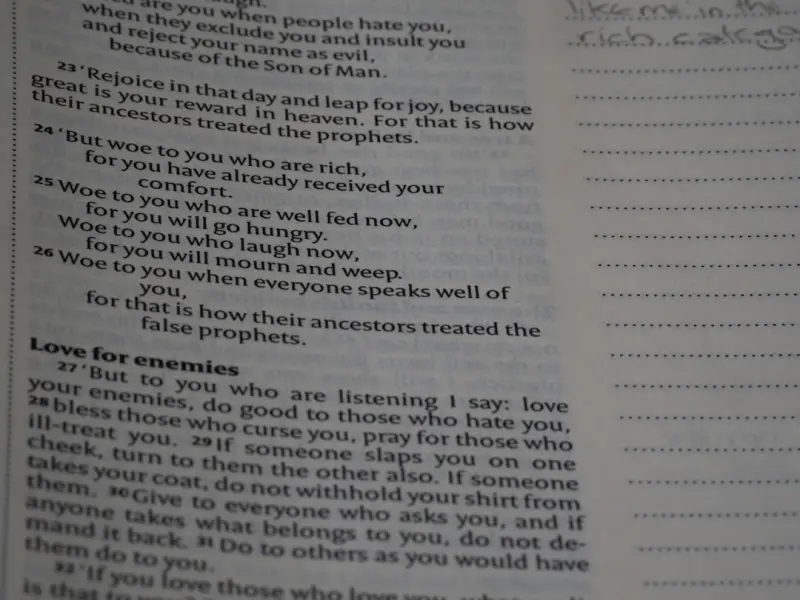 are you when people hate you,
when they exclude you and insult you
and reject your name as evil,
because of the Son of Man.
23 ‘Rejoice in that day and leap for joy, because
great is your reward in heaven. For that is how
their ancestors treated the prophets.
24 ‘But woe to you who are rich,
for you have already received your
comfort.
25 Woe to you who are well fed now,
for you will go hungry.
Woe to you who laugh now,
for you will mourn and weep.
26 Woe to you when everyone speaks well of
you,
for that is how their ancestors treated the
false prophets.
Love for enemies
27 ‘But to you who are listening I say: love
your enemies, do good to those who hate you,
28 bless those who curse you, pray for those who
ill-treat you. 29 If someone slaps you on one
cheek, turn to them the other also. If someone
takes your coat, do not withhold your shirt from
them. 30 Give to everyone who asks you, and if
anyone takes what belongs to you, do not de-
mand it back. 31 Do to others as you would have
them do to you.
32 ‘If you love those who love you,
is that to
like me in the
rich